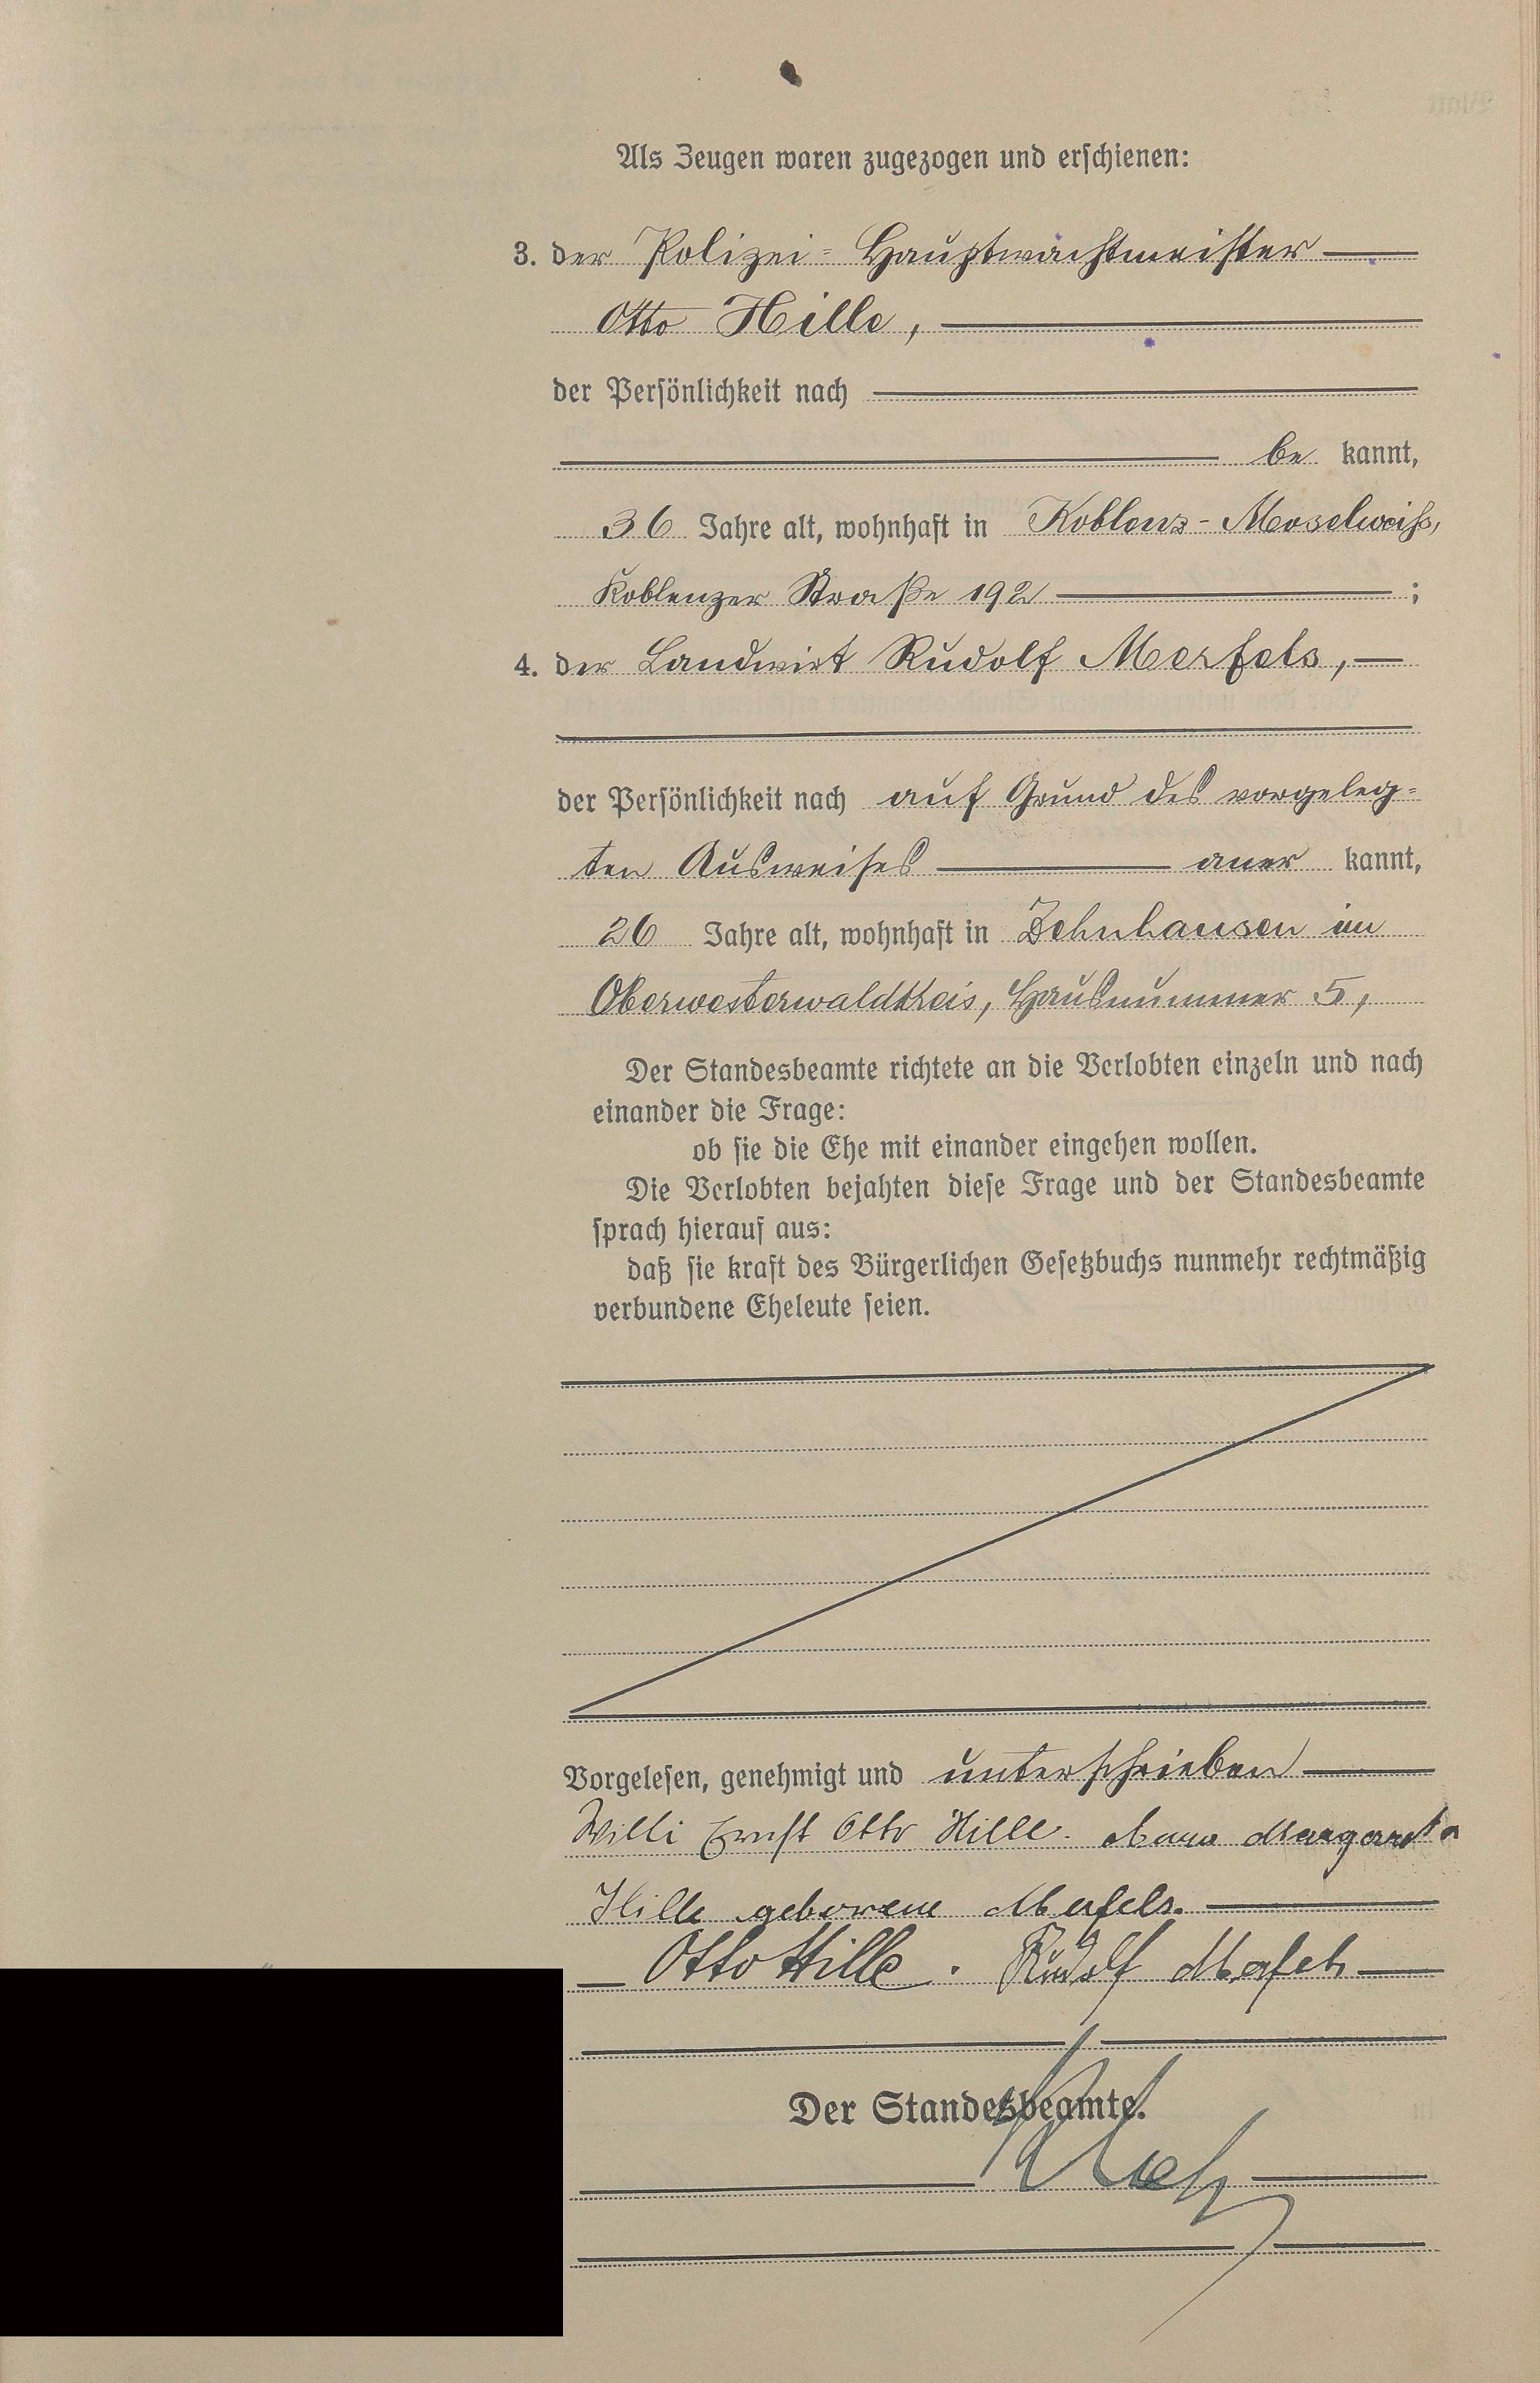 Als Zeugen waren zugezogen und erschienen:
3. der Polizei-Hauptwachtmeister
Otto Hille,
der Persönlichkeit nach
be kannt,
36 Jahre alt, wohnhaft in Koblenz-Moselweiß,
Koblenzer Straße 192 ;
4. der Landwirt Rudolf Merfels,
der Persönlichkeit nach auf Grund des vorgeleg-
ten Ausweises aner kannt,
26 Jahre alt, wohnhaft in Zehnhausen im
Oberwesterwaldkreis, Hausnummer 5,
Der Standesbeamte richtete an die Verlobten einzeln und nach
einander die Frage:
ob sie die Ehe mit einander eingehen wollen.
Die Verlobten bejahten diese Frage und der Standesbeamte
sprach hierauf aus:
daß sie kraft des Bürgerlichen Gesetzbuchs nunmehr rechtmäßig
verbundene Eheleute seien.
Vorgelesen, genehmigt und unterschrieben
Willi Ernst Otto Hille. Margareta
Hille geborene Merfels.
Otto Hille. Rudolf Merfels
Der Standesbeamte.